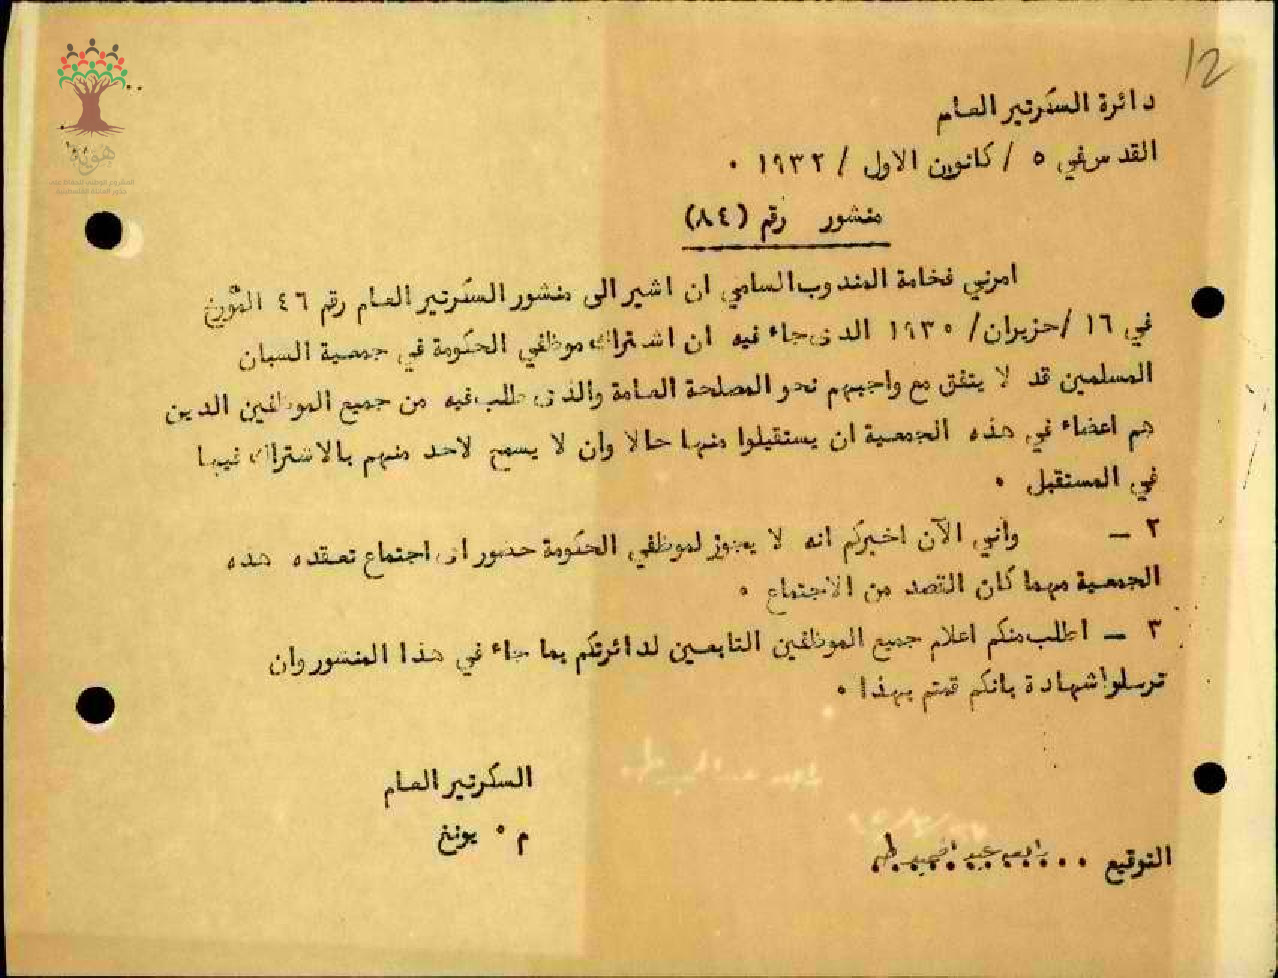 12
دائرة السكرتير العام
القدس في ٥ / كانون الاول / ١٩٣٢ ٠
منشور رقم (٨٤)
امرني فخامة المندوب السامي ان اشير الى منشور السكرتير العام رقم ٤٦ المؤرخ
في ١٦ /حزيران/ ١٩٣٠ الذى جاء فيه ان اشتراك موظفي الحكومة في جمعية السبان
المسلمين قد لا يتفق مع واجبهم نحو المصلحة العامة والذى طلب فيه من جميع الموظفين الذين
هم اعضاء في هذه الجمعية ان يستقيلوا منها حالا وان لا يسمح لاحد منهم بالاشتراك فيها
في المستقبل ٠
٢ – وأني الآن اخبركم انه لا يجوز لموظفي الحكومة حضور اى اجتماع تعقده هذه
الجمعية مهما كان القصد من الاجتماع ٠
٣ – اطلب منكم اعلام جميع الموظفين التابعين لدائرتكم بما جاء في هذا المنشور وان
ترسلوا شهادة بانكم قمتم بهذا ٠
السكرتير العام
م ٠ يونغ
التوقيع ... عبد الحميد طه
هوية
المشروع الوطني للحفاظ على
جذور العائلة الفلسطينية